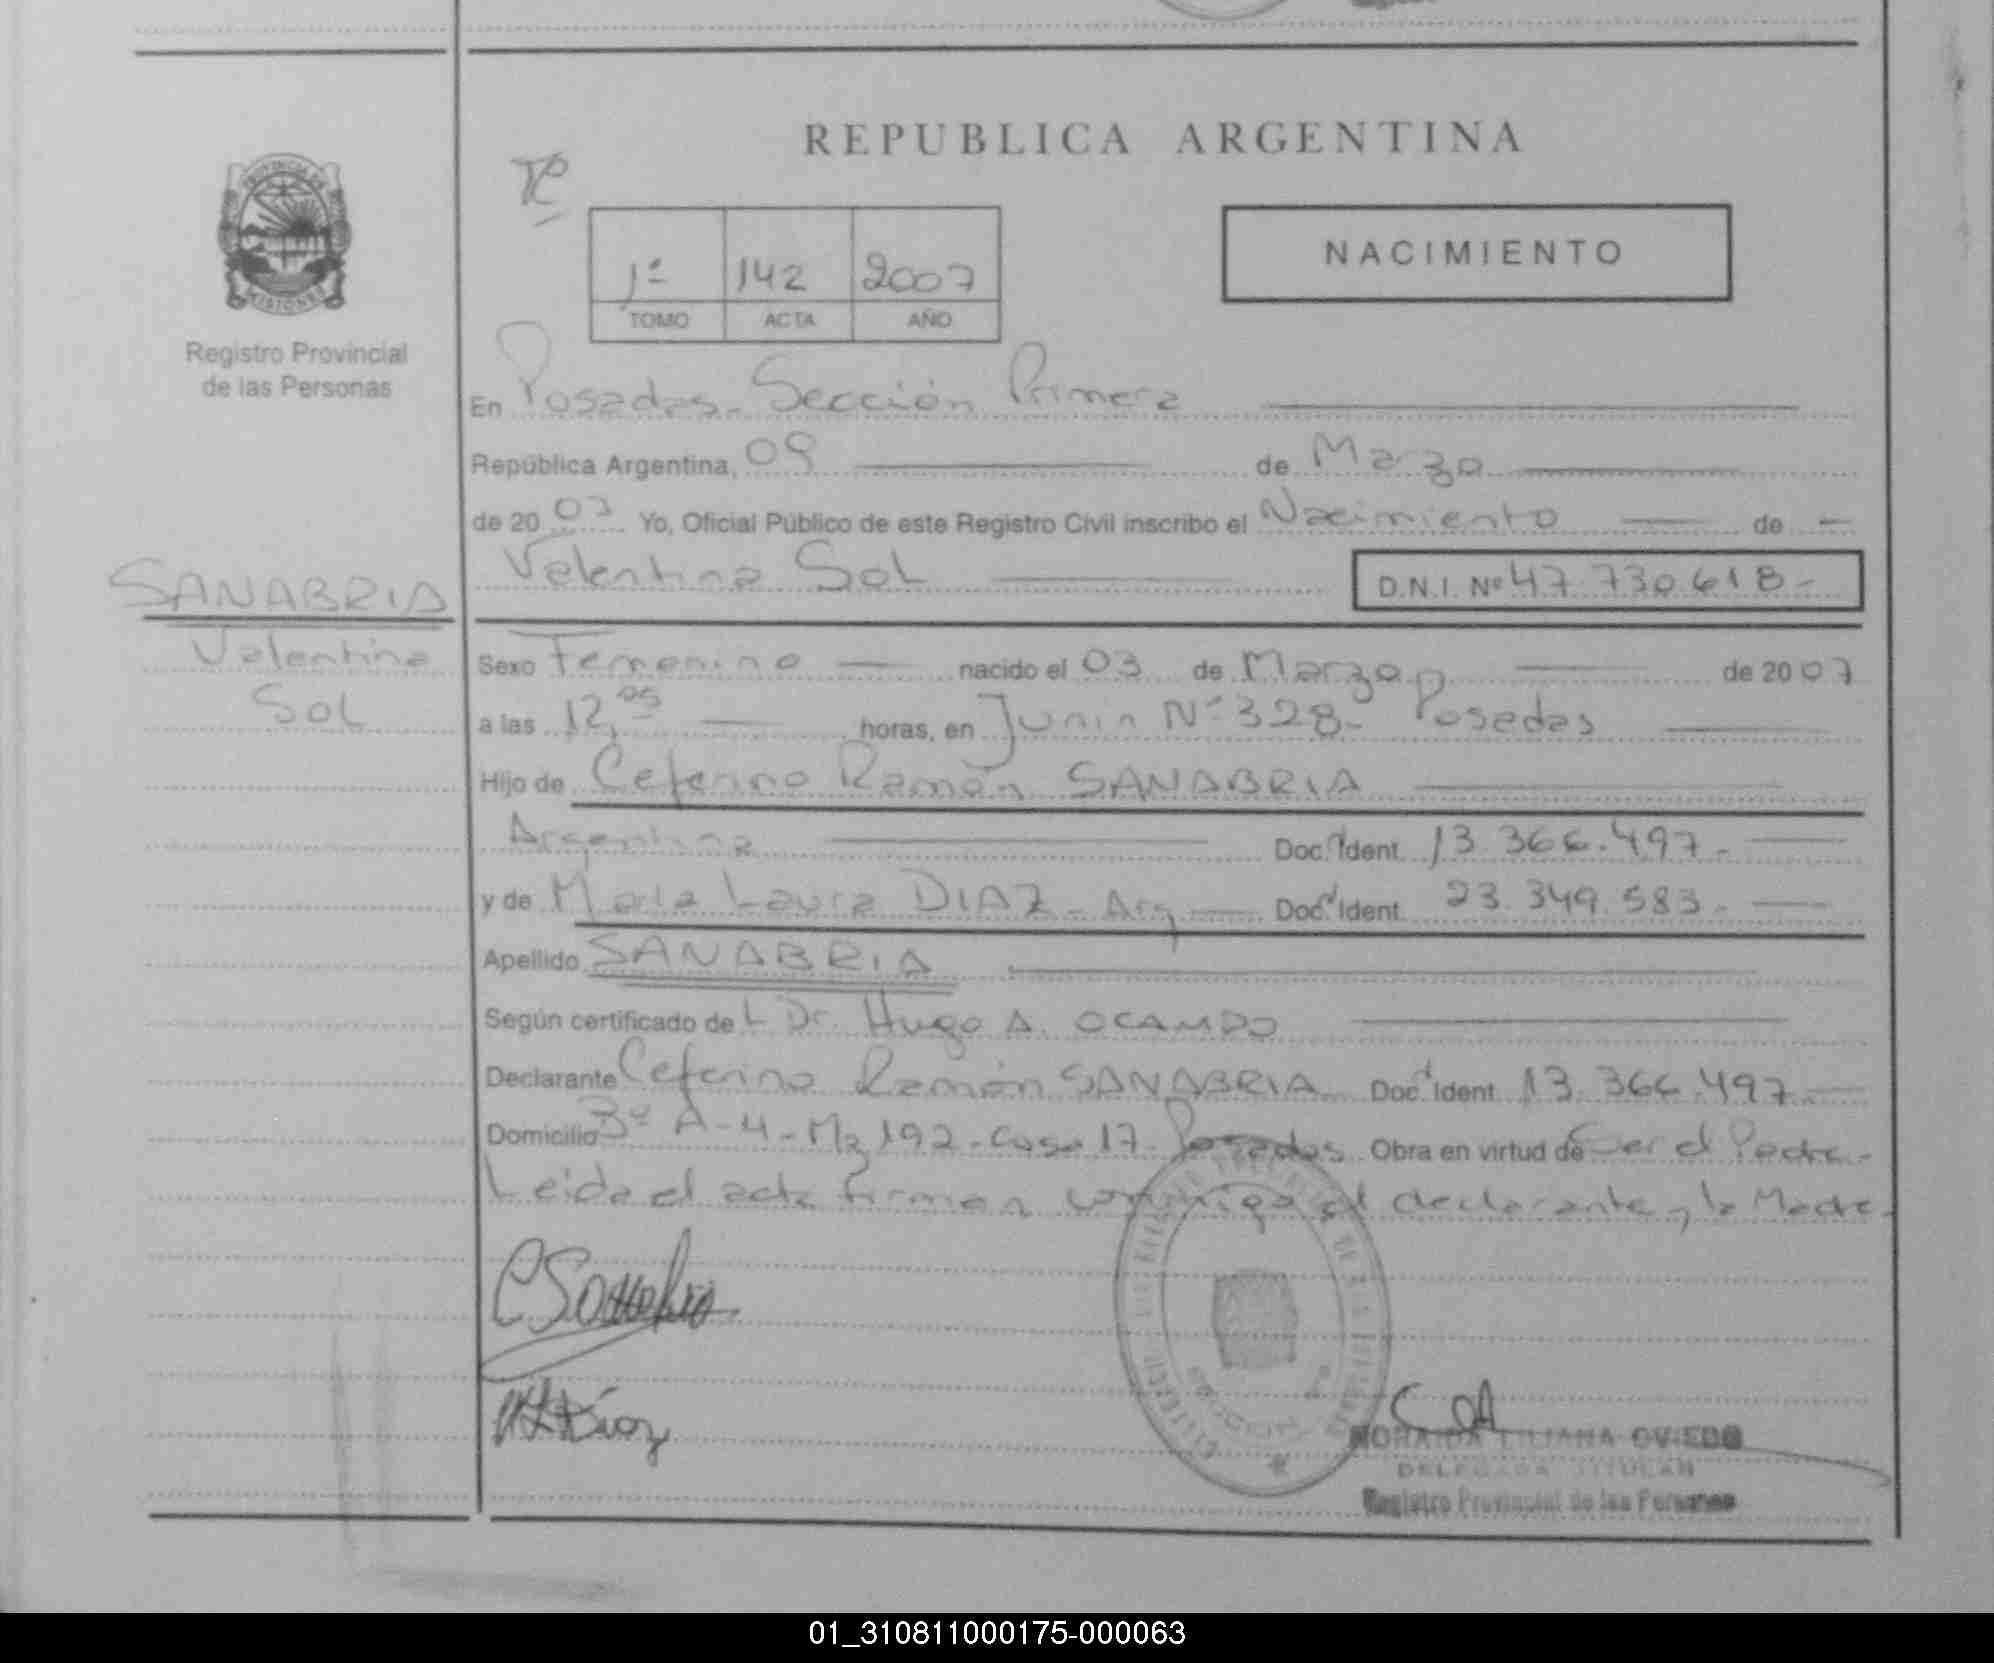 REPUBLICA ARGENTINA
PROVINCIA DE
MISIONES
Registro Provincial
de las Personas
1ª 142 2007
TOMO ACTA AÑO
NACIMIENTO
En Posadas. Sección Primera
República Argentina, 09 de Marzo
de 20 07 Yo, Oficial Público de este Registro Civil inscribo el Nacimiento de
Valentina Sol D.N.I. Nº 47.730.618-
SANABRIA
Valentina
Sol
Sexo Femenino nacido el 03 de Marzo de 20 07
a las 12,05 horas, en Junín Nº 328- Posadas
Hijo de Ceferino Ramón SANABRIA
Argentina Doc. Ident. 13.366.497.-
y de María Laura DIAZ - Arg Doc. Ident. 23.349.583.-
Apellido SANABRIA
Según certificado de L Dr. Hugo A. OCAMPO
Declarante Ceferino Ramón SANABRIA Doc. Ident. 13.366.497.
Domicilio Bº A-4 - Mz 192 - Casa 17 - Posadas Obra en virtud de Ser el Padre.-
Leída el acta firman conmigo el declarante y la Madre.
CSanabria
MLDíaz
LILIANA OVIEDO
DELEGADA TITULAR
Registro Provincial de las Personas
01_310811000175-000063